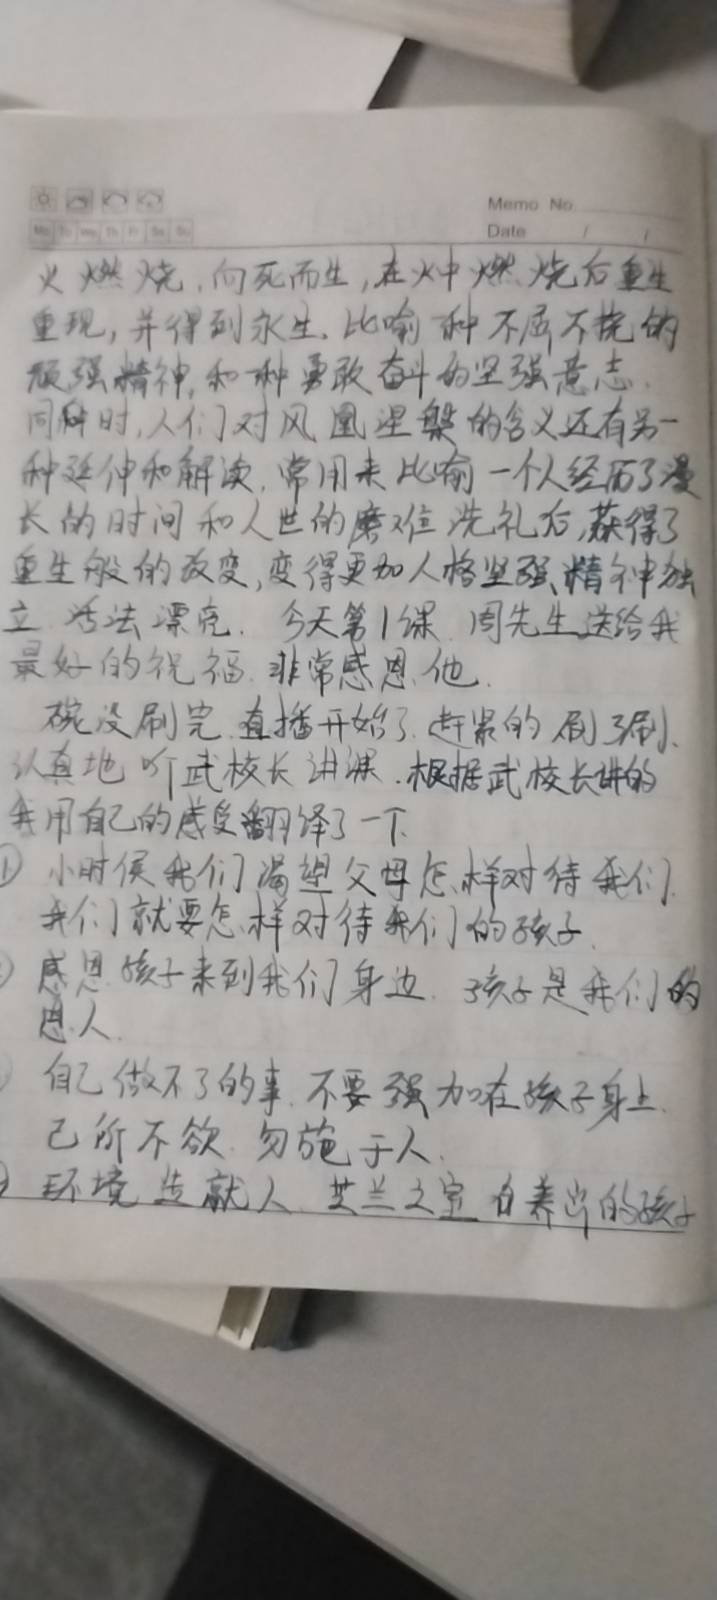 Memo No.
Mo Tu We Th Fr Sa Su
Date / /
火燃烧,向死而生,在火中燃烧后重生
重现,并得到永生.比喻一种不屈不挠的
顽强精神,和一种勇敢奋斗的坚强意志.
同时,人们对凤凰涅槃的含义还有另一
种延伸和解读.常用来比喻一个人经历了漫
长的时间和人世的磨难洗礼后,获得了
重生般的改变,变得更加人格坚强、精神独
立、活法漂亮. 今天第1课.周先生送给我
最好的祝福.非常感恩他.
碗没刷完.直播开始了.赶紧的刷了刷.
认真地听武校长讲课.根据武校长讲的
我用自己的感受翻译了一下.
① 小时候我们渴望父母怎样对待我们.
我们就要怎样对待我们的孩子.
感恩孩子来到我们身边. 孩子是我们的
恩人.
自己做不了的事.不要强加在孩子身上.
己所不欲.勿施于人.
环境造就人.芝兰之室 养出的孩子